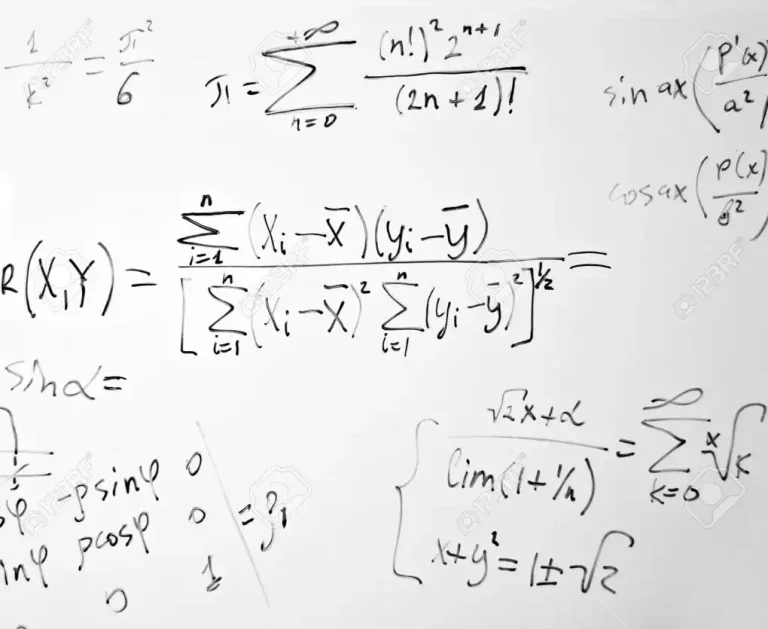 1/x² = π²/6
π = ∑_{n=0}^{+∞} (n!)² 2^{n+1} / (2n+1)!
sin ax (P'(x)/a²
cos ax (P(x)/a²
R(X,Y) = ∑_{i=1}^{n} (x_i − x̄)(y_i − ȳ) / [∑_{i=1}^{n} (x_i − x̄)² ∑_{i=1}^{n} (y_i − ȳ)²]^{1/2} =
sin α =
−ρ sin φ 0
φ ρ cos φ 0 =
in φ 0 1
{ √2x+α / lim(1+1/n) = ∑_{k=0}^{∞} ˣ√k
x+y² = 1±√2
123RF